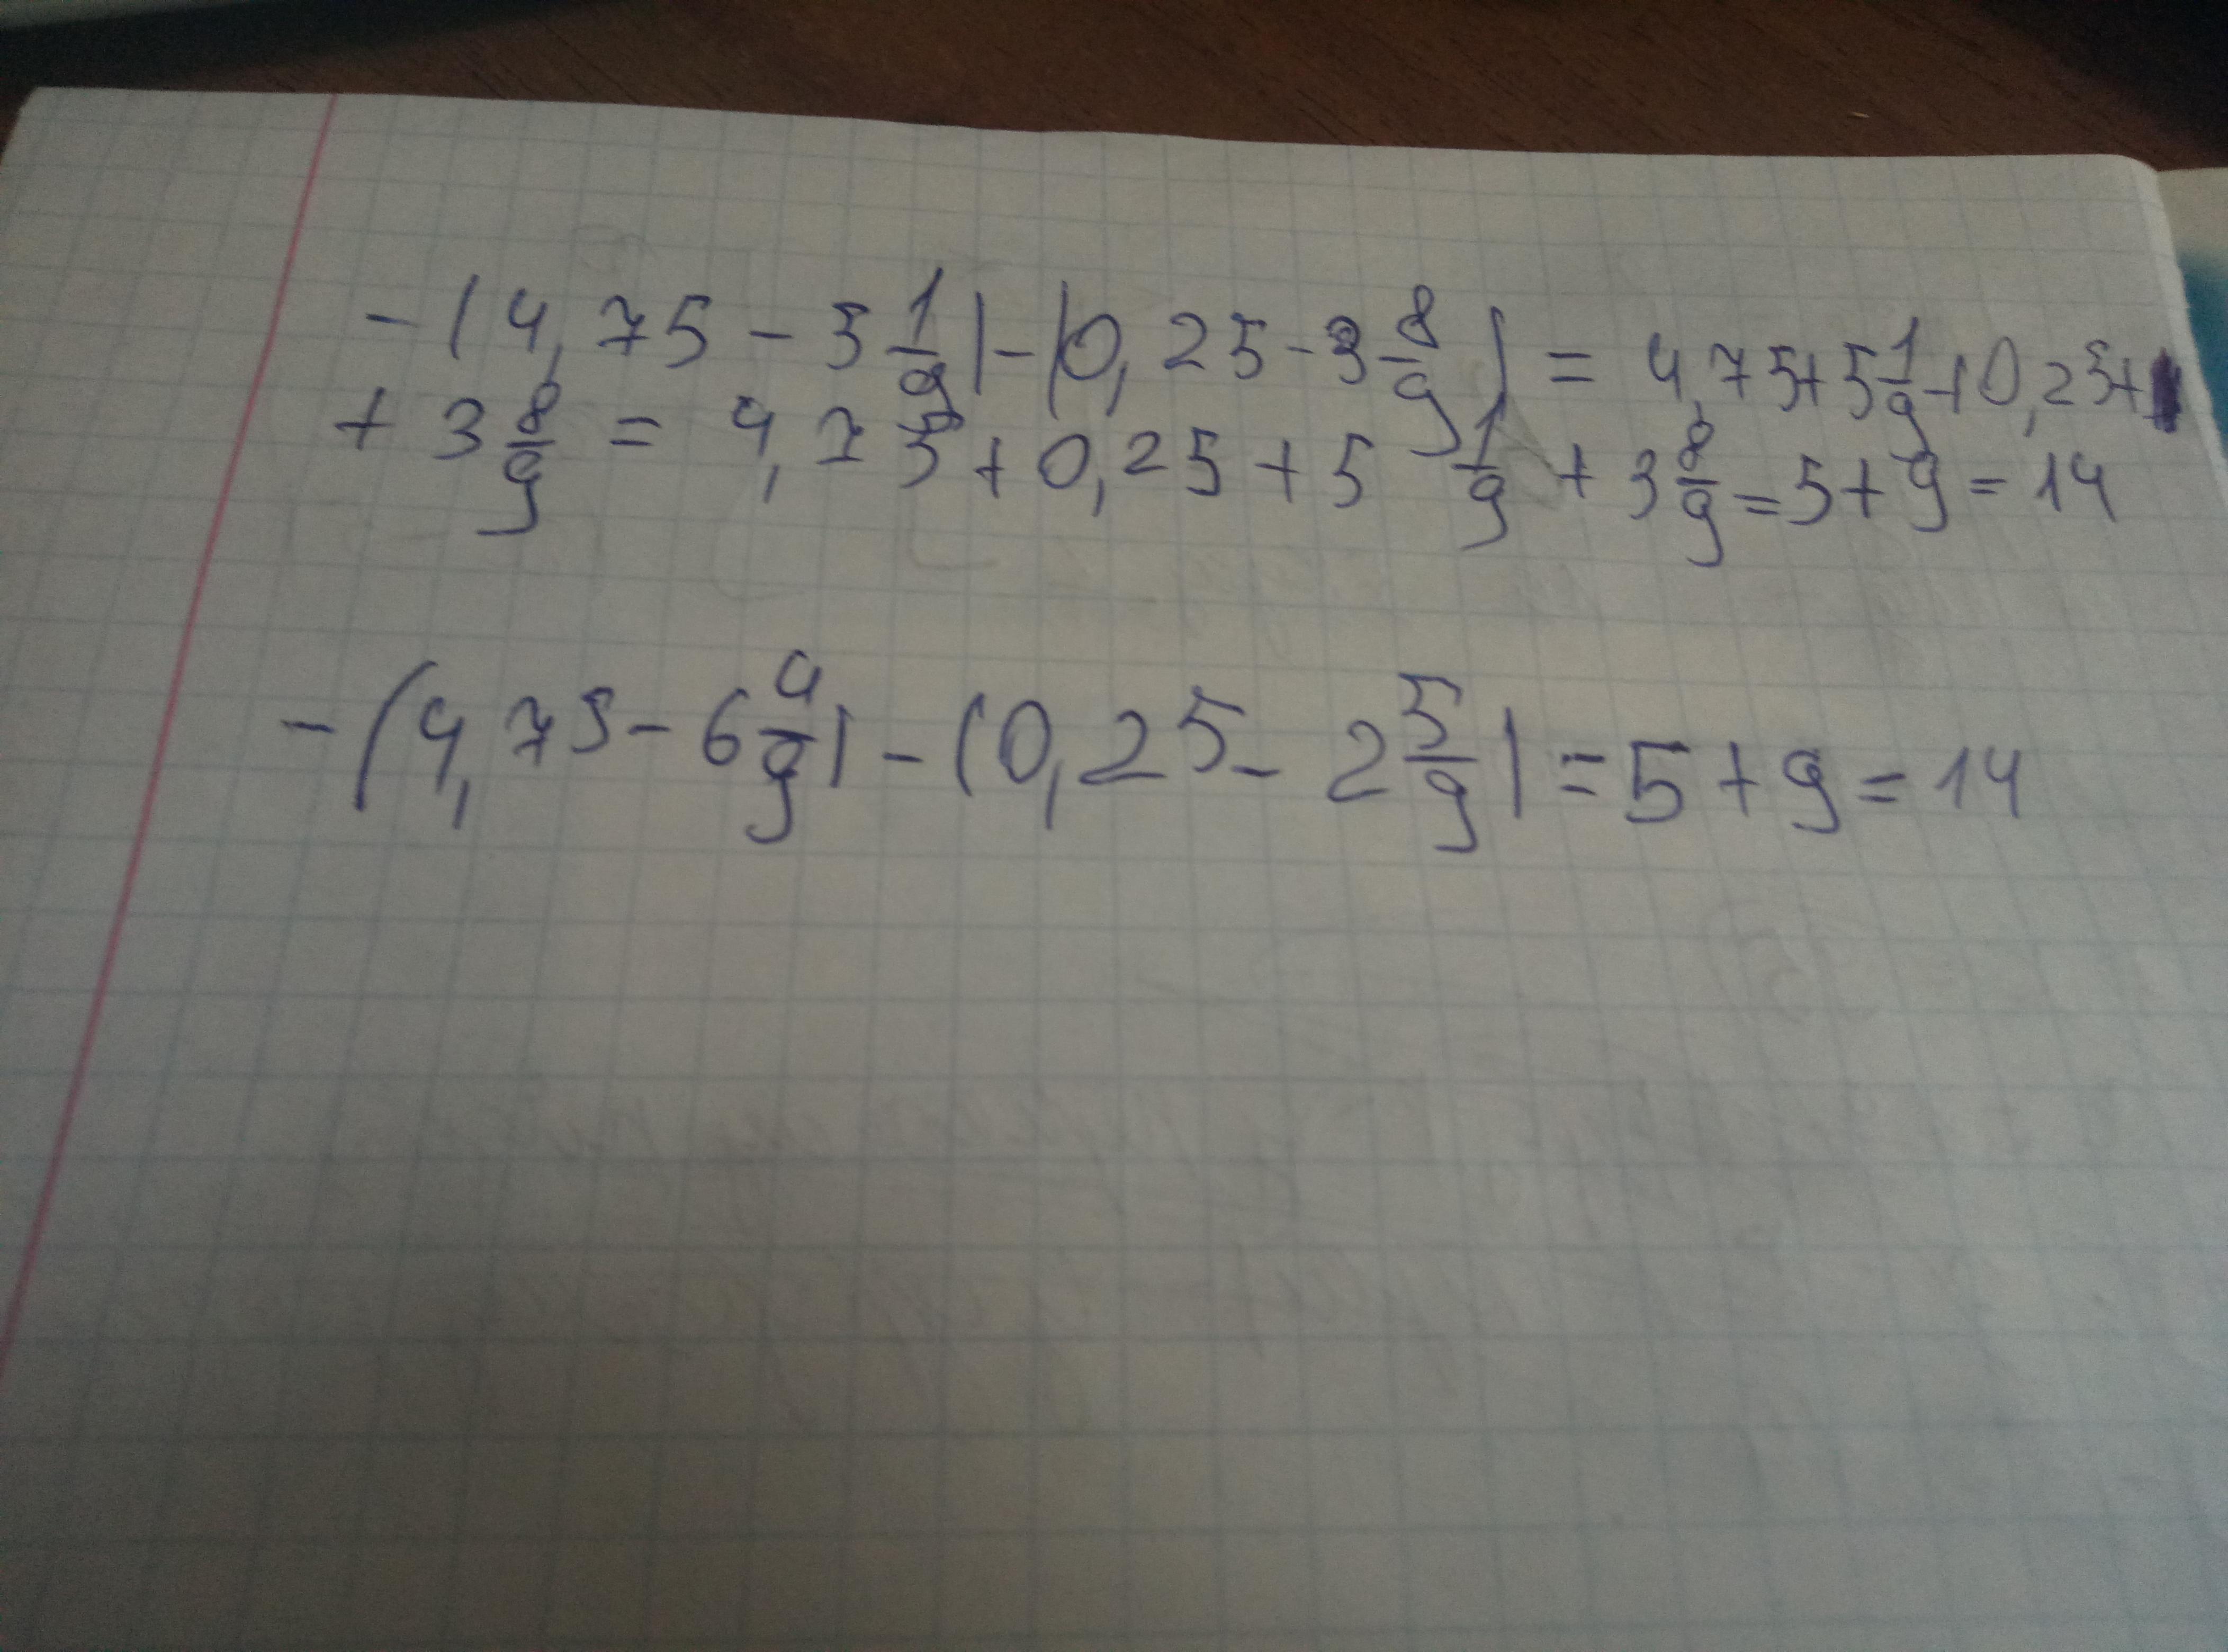 -(4,75 - 5 1/9) - (0,25 - 3 8/9) = 4,75 + 5 1/9 + 0,25 +
+ 3 8/9 = 4,75 + 0,25 + 5 1/9 + 3 8/9 = 5 + 9 = 14
-(4,75 - 6 4/9) - (0,25 - 2 5/9) = 5 + 9 = 14